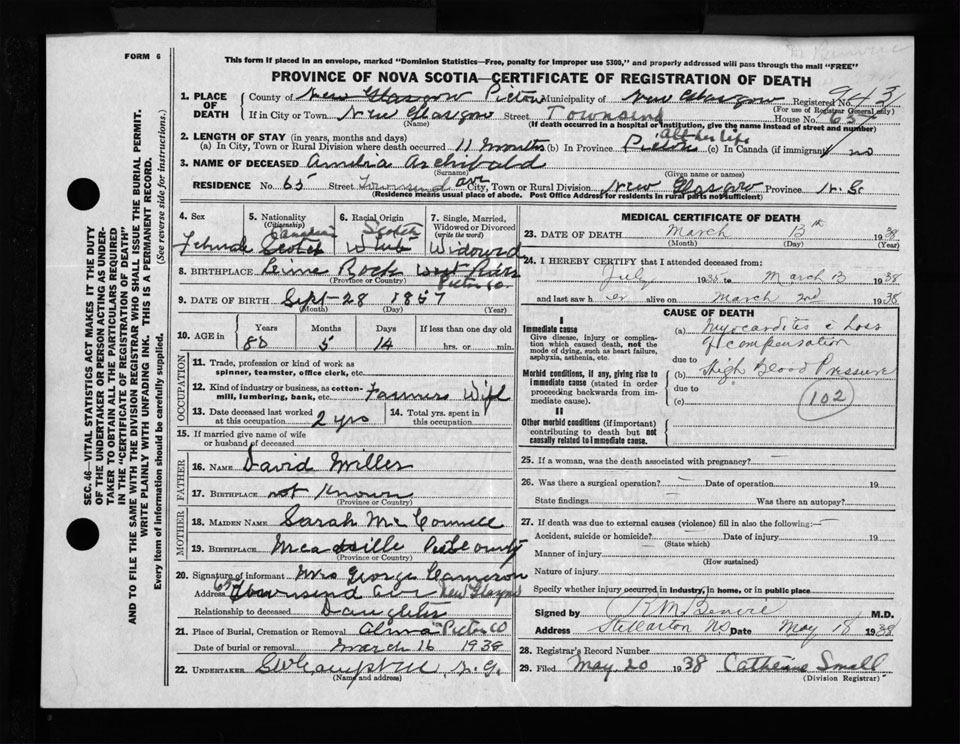 FORM 6
This form if placed in an envelope, marked "Dominion Statistics—Free, penalty for improper use $300," and properly addressed will pass through the mail "FREE"
PROVINCE OF NOVA SCOTIA—CERTIFICATE OF REGISTRATION OF DEATH
SEC. 46—VITAL STATISTICS ACT MAKES IT THE DUTY
OF THE UNDERTAKER OR PERSON ACTING AS UNDER-
TAKER "TO OBTAIN ALL THE PARTICULARS REQUIRED
IN THE "CERTIFICATE OF REGISTRATION OF DEATH"
AND TO FILE THE SAME WITH THE DIVISION REGISTRAR WHO SHALL ISSUE THE BURIAL PERMIT.
WRITE PLAINLY WITH UNFADING INK. THIS IS A PERMANENT RECORD.
Every item of information should be carefully supplied. (See reverse side for instructions.)
1. PLACE OF DEATH
County of New Glasgow Pictou Municipality of New Glasgow Registered No. 943
(For use of Registrar General only)
If in City or Town New Glasgow Street Townsend House No. 637
(Name) (If death occurred in a hospital or institution, give name instead of street and number)
2. LENGTH OF STAY (in years, months and days)
(a) In City, Town or Rural Division where death occurred 11 months (b) In Province Pictou all her life (c) In Canada (if immigrant) no
3. NAME OF DECEASED Archibald
(Surname) (Given name or names)
RESIDENCE No 65 Street Townsend ave City, Town or Rural Division New Glasgow Province N. Sc
(Residence means usual place of abode. Post Office Address for residents in rural parts not sufficient)
4. Sex Female
5. Nationality (Citizenship) Canadian Scotch
6. Racial Origin Scotch White
7. Single, Married, Widowed or Divorced (write the word) Widowed
8. BIRTHPLACE Lime Rock West River Pictou Co
(Province or Country)
9. DATE OF BIRTH Sept - 28 1857
(Month) (Day) (Year)
10. AGE in Years 80 Months 5 Days 14 If less than one day old
hrs. or min.
OCCUPATION
11. Trade, profession or kind of work as
spinner, teamster, office clerk, etc.
12. Kind of industry or business, as cotton-
mill, lumbering, bank, etc. Farmers Wife
13. Date deceased last worked at this occupation 2 yrs 14. Total yrs. spent in this occupation
15. If married give name of wife
or husband of deceased
FATHER
16. NAME David Miller
17. BIRTHPLACE not Known
(Province or Country)
MOTHER
18. MAIDEN NAME Sarah McConnell
19. BIRTHPLACE Meadville Pict County
(Province or Country)
20. Signature of informant Mrs George Cameron
Address 65 Townsend Ave New Glasgow
Relationship to deceased Daughter
21. Place of Burial, Cremation or Removal Alma Pictou Co
Date of burial or removal March 16 1938
22. UNDERTAKER N. G.
(Name and address)
MEDICAL CERTIFICATE OF DEATH
23. DATE OF DEATH March 13th 1938
(Month) (Day) (Year)
24. I HEREBY CERTIFY that I attended deceased from:
July 1935 to March 13 1938
and last saw her alive on March 2nd 1938
CAUSE OF DEATH
I
Immediate cause
Give disease, injury or complica-
tion which caused death, not the
mode of dying, such as heart failure,
asphyxia, asthenia, etc.
(a) Myocarditis c Loss
of compensation
due to
Morbid conditions, if any, giving rise to
immediate cause (stated in order
proceeding backwards from im-
mediate cause).
(b) High Blood Pressure
due to
(c) 102
II
Other morbid conditions (if important)
contributing to death but not
causally related to immediate cause.
25. If a woman, was the death associated with pregnancy? —
26. Was there a surgical operation? — Date of operation 19
State findings Was there an autopsy?
27. If death was due to external causes (violence) fill in also the following: —
Accident, suicide or homicide? Date of injury 19
(State which)
Manner of injury
(How sustained)
Nature of injury
Specify whether injury occurred in industry, in home, or in public place
Signed by M.D.
Address Stellarton N.S. Date May 18 1938
28. Registrar's Record Number
29. Filed May 20 1938 Catherine Small
(Division Registrar)